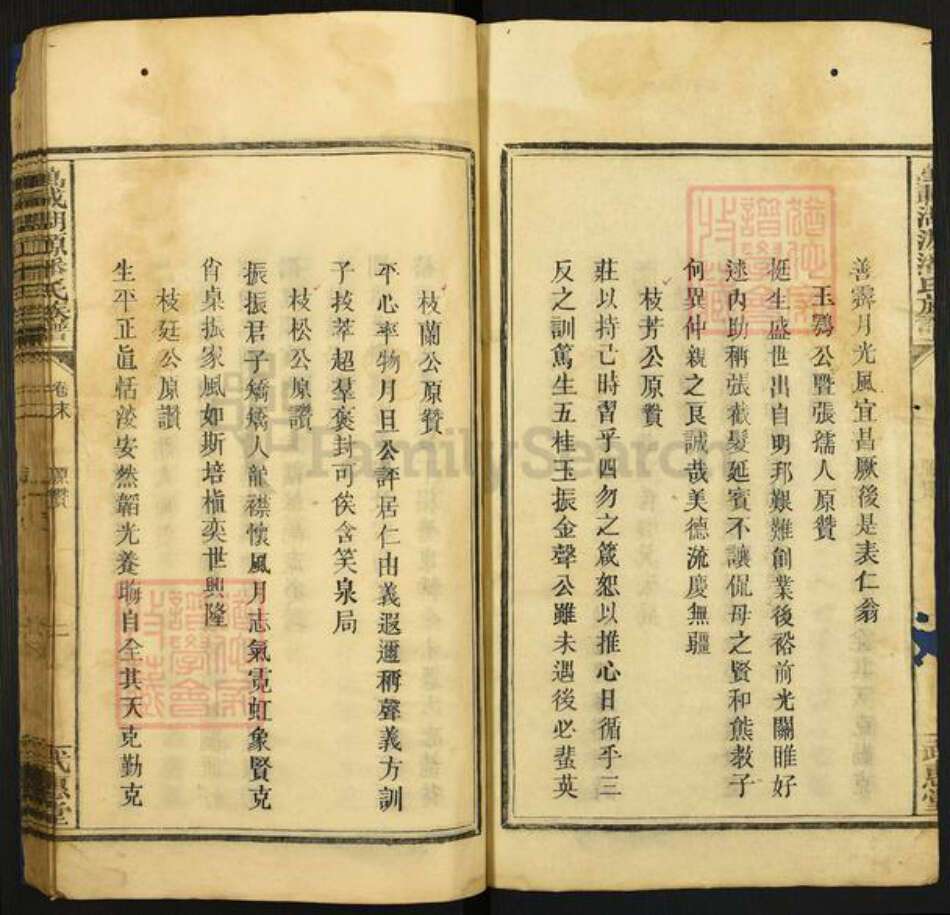 善霽月光風宜昌厥後是表仁翁
玉鶚公暨張孺人原贊
挺生盛世出自明邦艱難創業後裕前光關睢好
逑內助稱張截髮延賓不讓侃母之賢和熊教子
何異仲親之艮誠哉美德流慶無疆
枝芳公原贊
莊以持己時習乎四勿之箴恕以推心日循乎三
反之訓篤生五桂玉振金聲公雖未遇後必蜚英
枝蘭公原贊
平心率物月旦公評居仁由義遐邇稱聲義方訓
子拔萃超羣褒封可俟含笑泉局
枝松公原讚
振振君子矯矯人龍襟懷風月志氣霓虹象賢克
肖臬振家風如斯培植奕世興隆
枝廷公原讚
生平正直恬淡安然韜光養晦自全其天克勤克
湖源潘氏族譜
卷末
原讚
FamilySearch